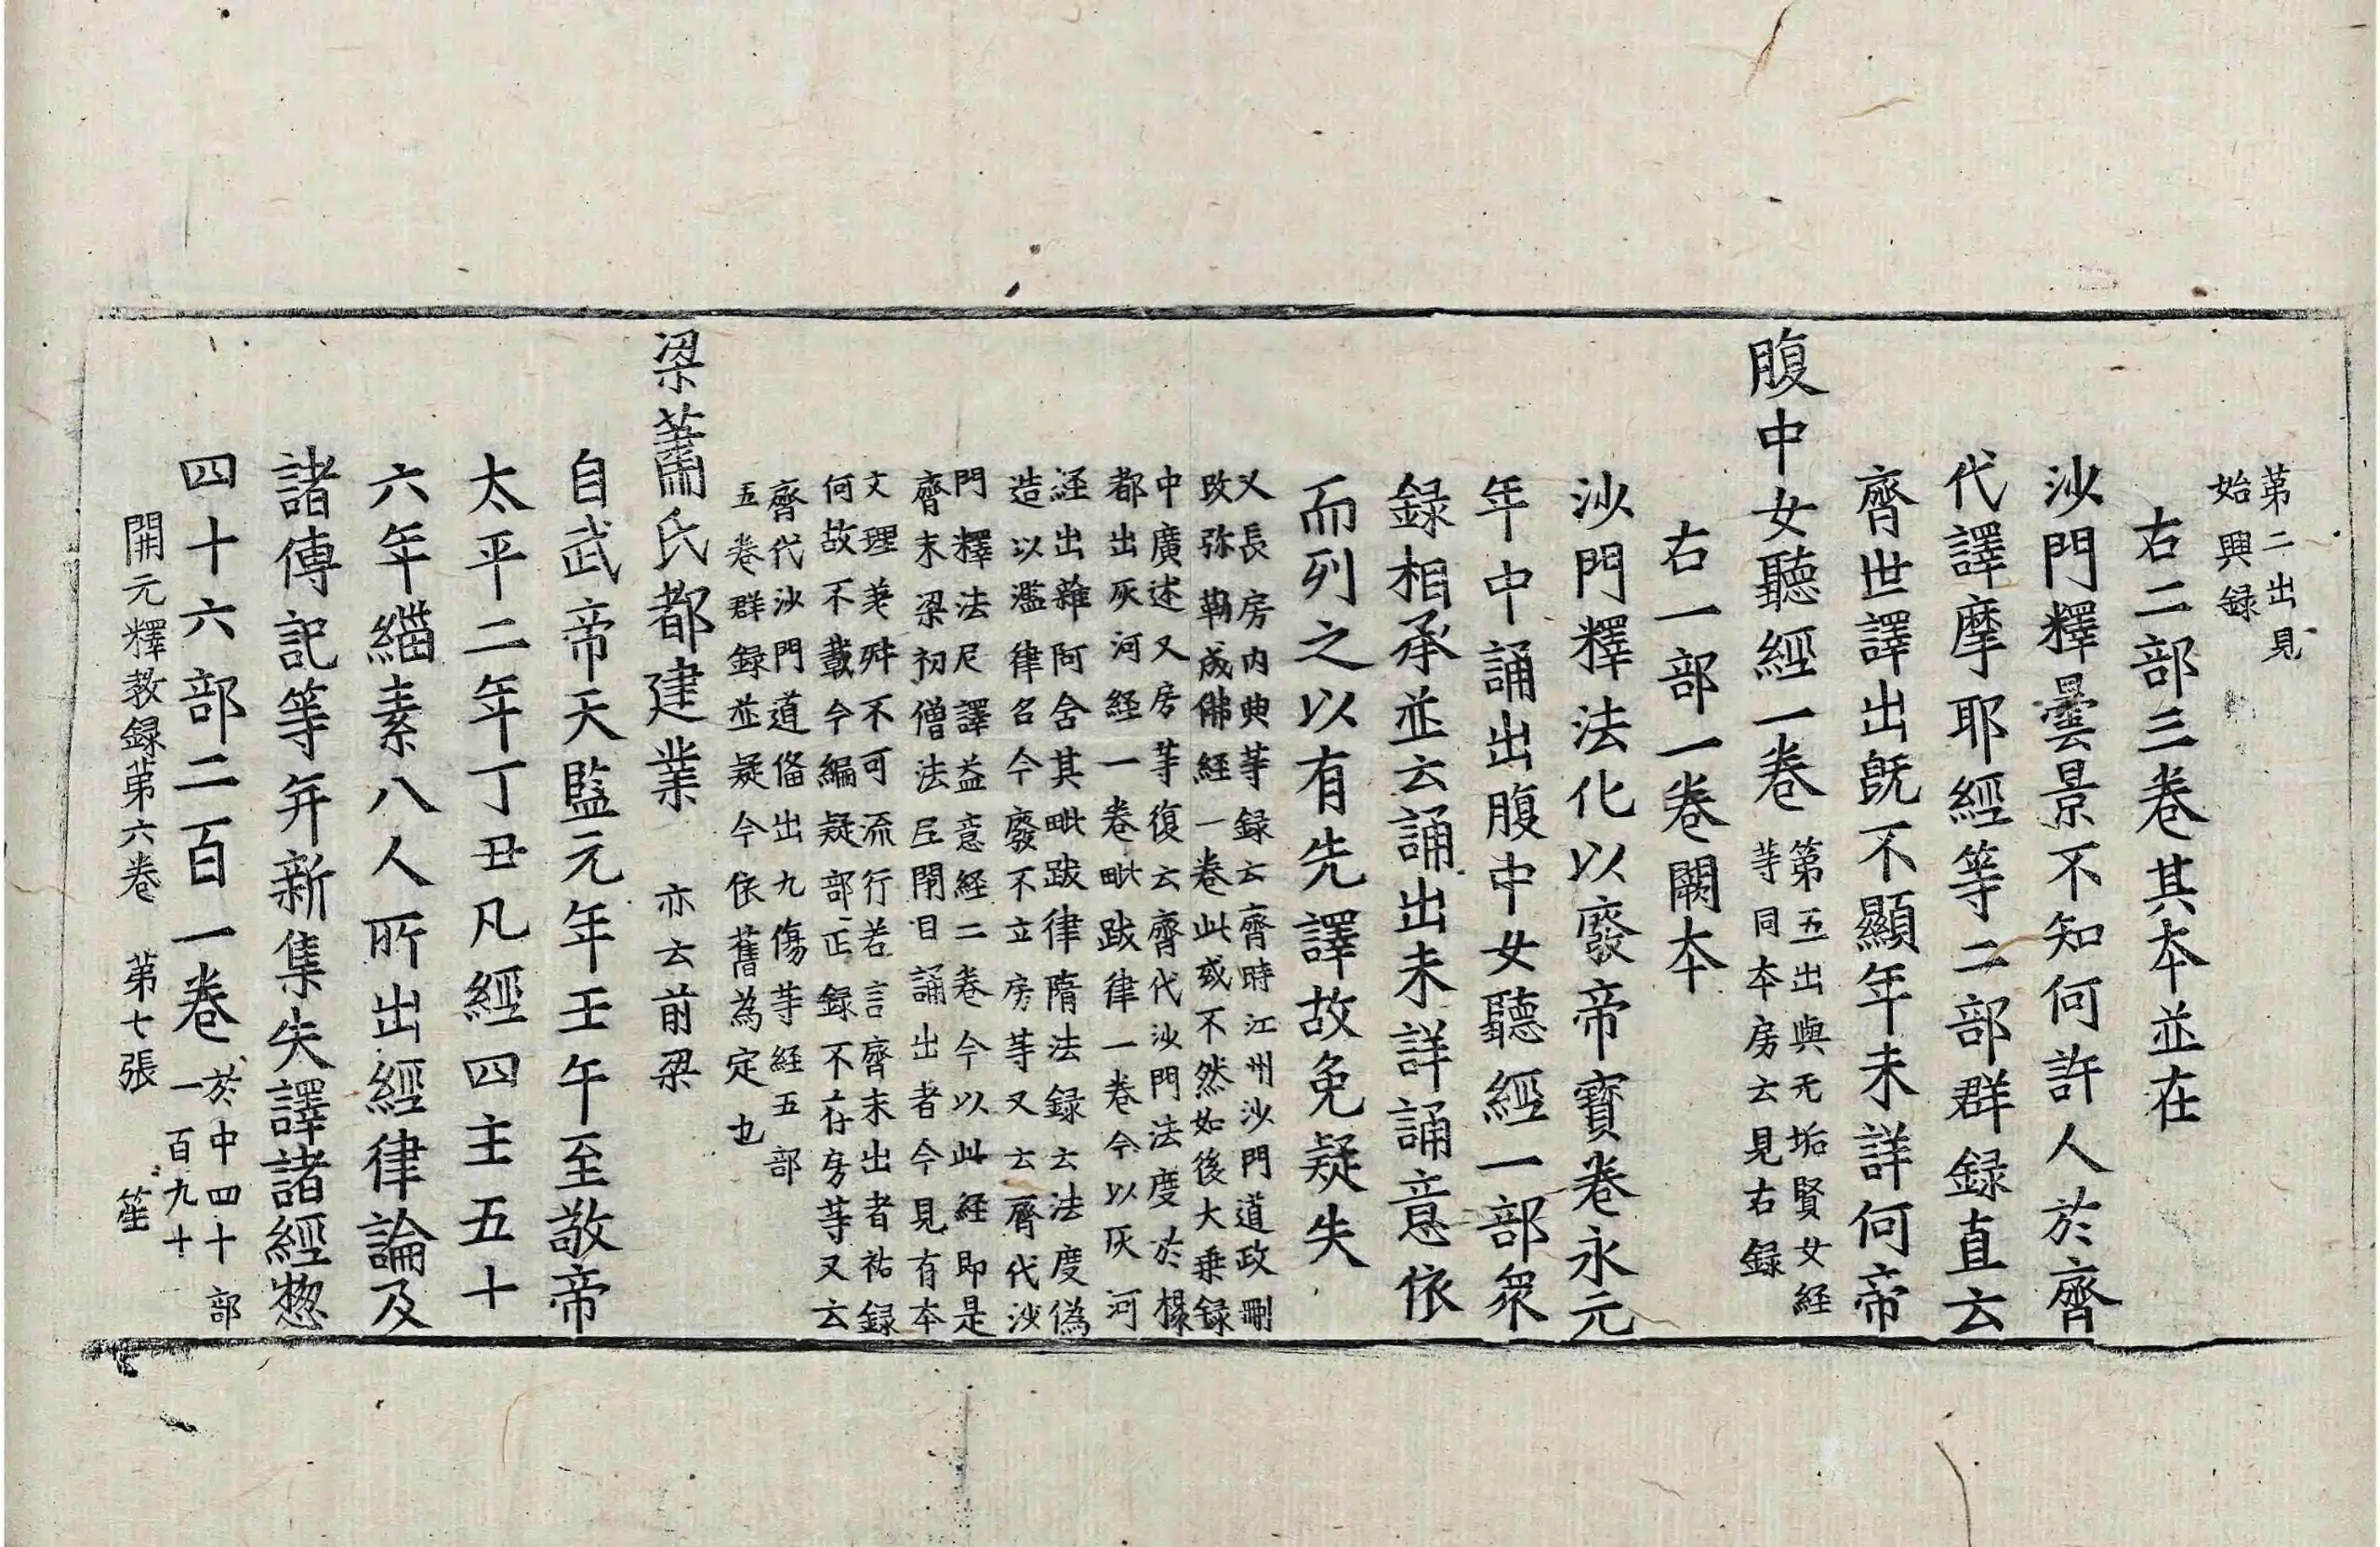 第二出見
始興録
右二部三卷其本並在
沙門釋曇景不知何許人於齊
代譯摩耶經等二部群録直云
齊世譯出旣不顯年未詳何帝
腹中女聽經一卷
第五出與无垢賢女經
等同本房云見右録
右一部一卷闕本
沙門釋法化以廢帝寶卷永元
年中誦出腹中女聽經一部衆
録相承並云誦出未詳誦意依
而列之以有先譯故免疑失
又長房內典等録云齊時江州沙門道政刪
改弥勒成佛経一卷此或不然如後大乗録
中廣述又房等復云齊代沙門法度於楊
都出灰河経一卷毗跋律一卷今以灰河
経出雜阿含其毗跋律隋法録云法度偽
造以濫律名今廢不立房等又云齊代沙
門釋法尼譯益意経二卷今以此経即是
齊末梁初僧法尼閉目誦出者今見有本
文理差舛不可流行若言齊末出者祐録
何故不載今編疑部正録不存房等又云
齊代沙門道俻出九傷等経五部
五卷群録並疑今依舊為定也
梁蕭氏都建業 亦云前梁
自武帝天監元年壬午至敬帝
太平二年丁丑凡經四主五十
六年緇素八人所出經律論及
諸傳記等并新集失譯諸經惣
四十六部二百一卷
於中四十部
一百九十
開元釋教録第六卷 第七張 笙